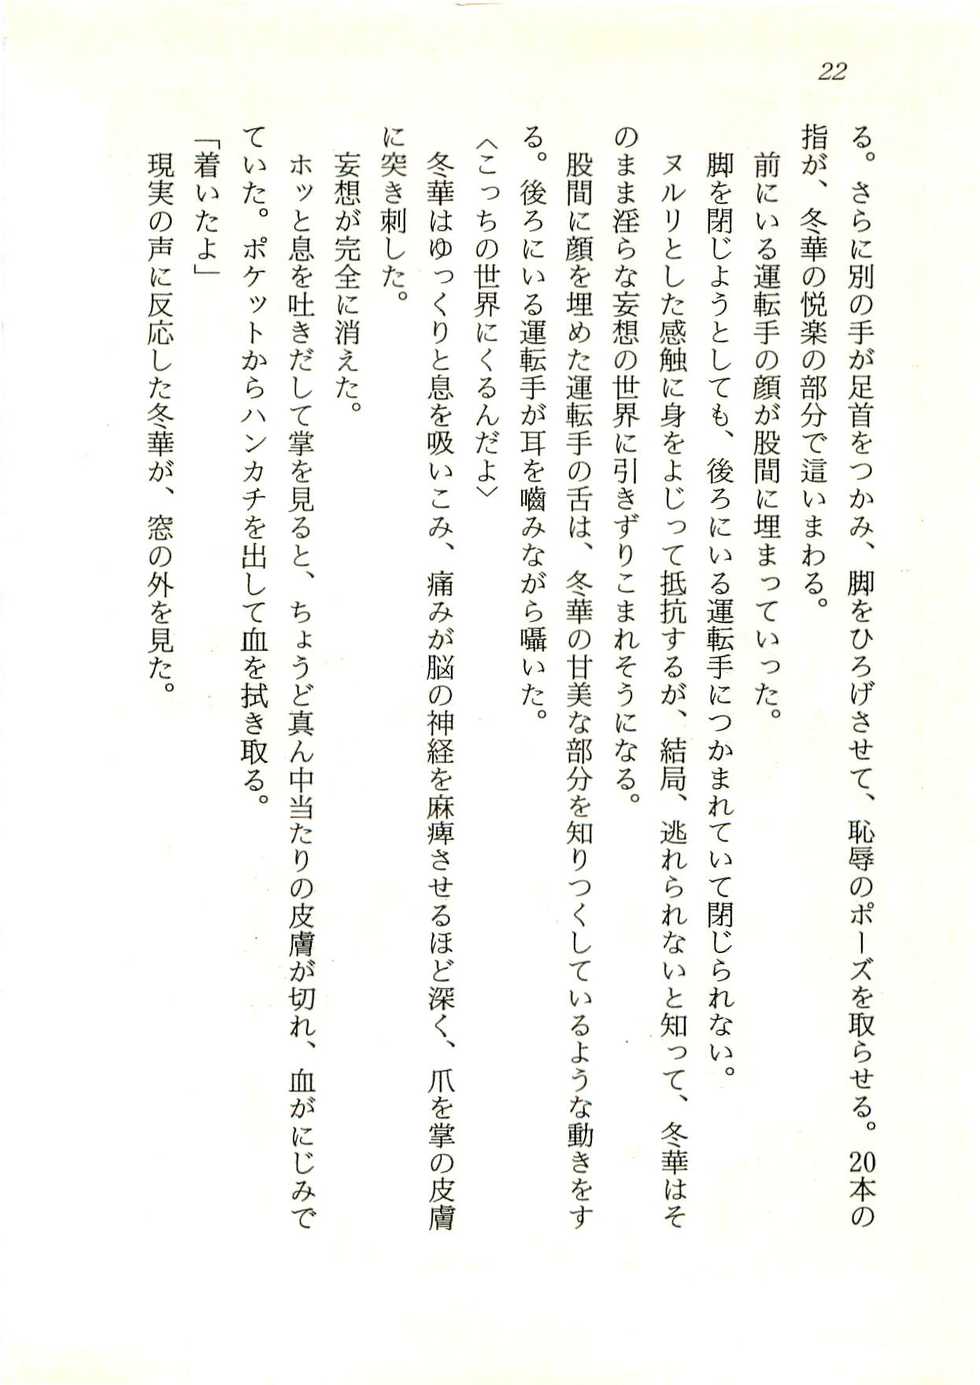 22
る。さらに別の手が足首をつかみ、脚をひろげさせて、恥辱のポーズを取らせる。20本の
指が、冬華の悦楽の部分で這いまわる。
前にいる運転手の顔が股間に埋まっていった。
脚を閉じようとしても、後ろにいる運転手につかまれていて閉じられない。
ヌルリとした感触に身をよじって抵抗するが、結局、逃れられないと知って、冬華はそ
のまま淫らな妄想の世界に引きずりこまれそうになる。
股間に顔を埋めた運転手の舌は、冬華の甘美な部分を知りつくしているような動きをす
る。後ろにいる運転手が耳を嚙みながら囁いた。
〈こっちの世界にくるんだよ〉
冬華はゆっくりと息を吸いこみ、痛みが脳の神経を麻痺させるほど深く、爪を掌の皮膚
に突き刺した。
妄想が完全に消えた。
ホッと息を吐きだして掌を見ると、ちょうど真ん中当たりの皮膚が切れ、血がにじみで
ていた。ポケットからハンカチを出して血を拭き取る。
「着いたよ」
現実の声に反応した冬華が、窓の外を見た。